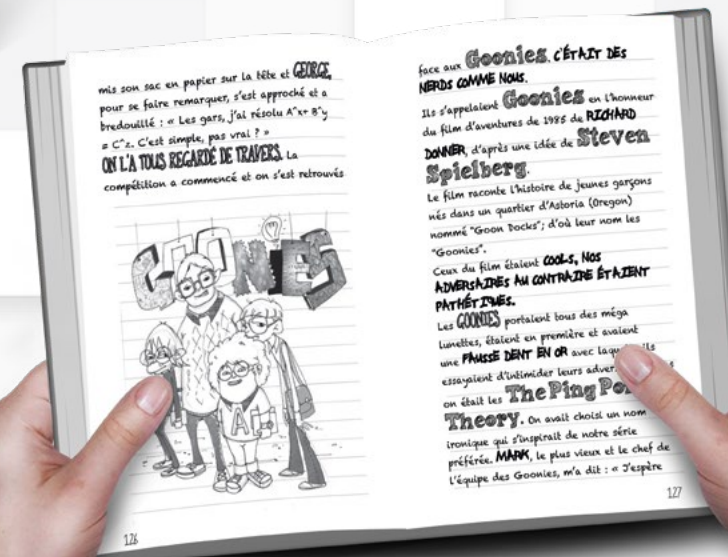 mis son sac en papier sur la tête et GEORGE,
pour se faire remarquer, s'est approché et a
bredouillé : « Les gars, j'ai résolu A^x+ B^y
= C^z. C'est simple, pas vrai ? »
ON L'A TOUS REGARDÉ DE TRAVERS. La
compétition a commencé et on s'est retrouvés
GOONIES
A
126
face aux Goonies. C'ÉTAIT DES
NERDS COMME NOUS.
Ils s'appelaient Goonies en l'honneur
du film d'aventures de 1985 de RICHARD
DONNER, d'après une idée de Steven
Spielberg.
Le film raconte l'histoire de jeunes garçons
nés dans un quartier d'Astoria (Oregon)
nommé "Goon Docks"; d'où leur nom les
"Goonies".
Ceux du film étaient COOLS, NOS
ADVERSAIRES AU CONTRAIRE ÉTAIENT
PATHÉTIQUES.
Les GOONIES portaient tous des méga
lunettes, étaient en première et avaient
une FAUSSE DENT EN OR avec ils
essayaient d'intimider leurs
on était les The Ping
Theory. On avait choisi un nom
ironique qui s'inspirait de notre série
préférée. MARK, le plus vieux et le chef de
l'équipe des Goonies, m'a dit : « J'espère
127